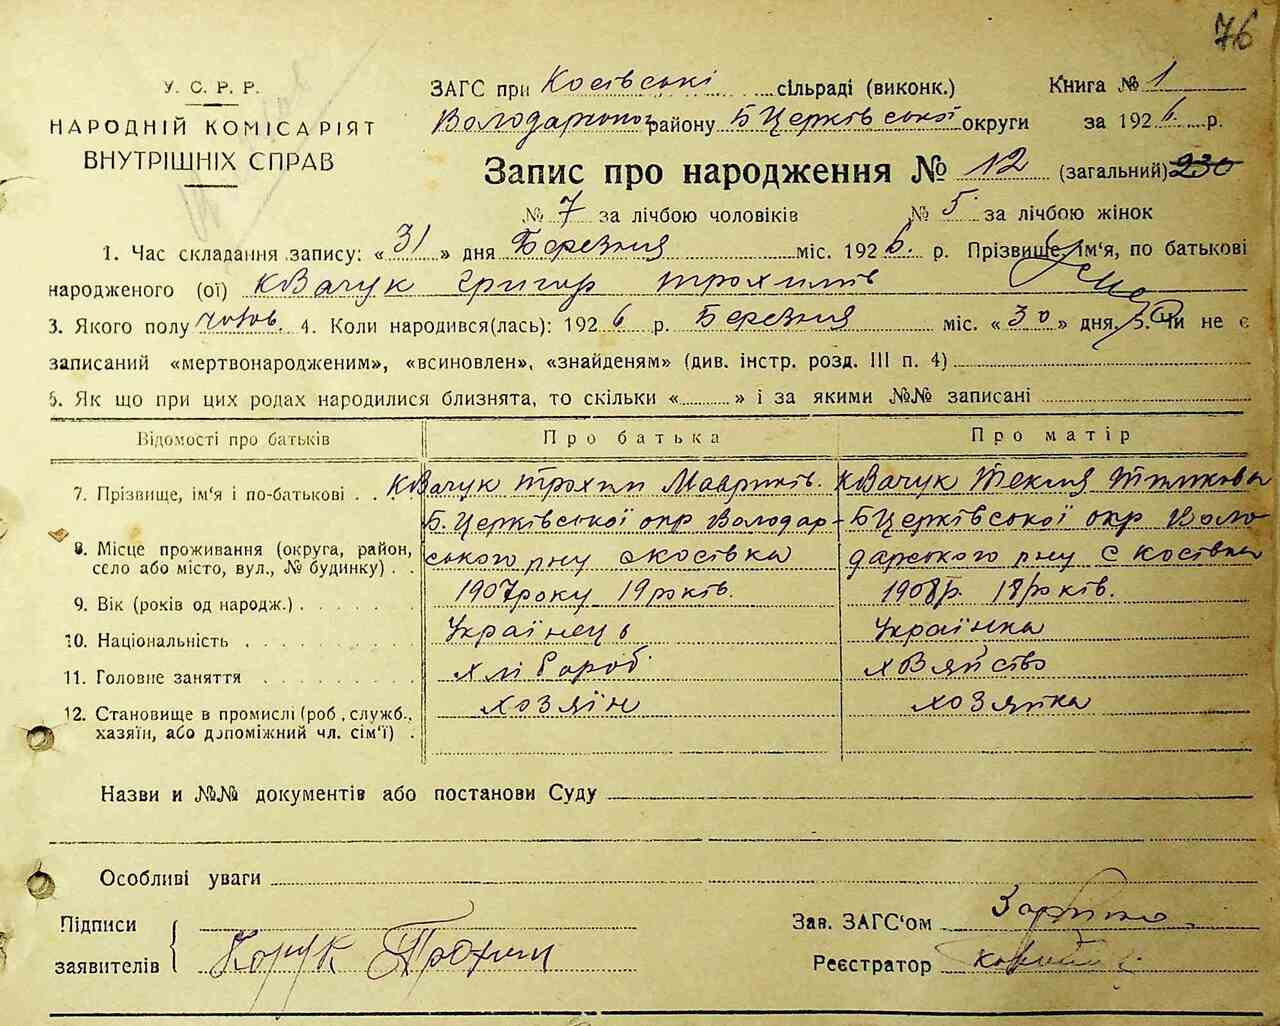 76
У. С. Р. Р.
НАРОДНІЙ КОМІСАРІЯТ
ВНУТРІШНІХ СПРАВ
ЗАГС при Косівські сільраді (виконк.) Книга № 1
Володарського району БЦерківської округи за 1926 р.
Запис про народження № 12 (загальний) 230
№ 7 за лічбою чоловіків № 5 за лічбою жінок
1. Час складання запису: «31» дня Березния міс. 1926 р. Прізвище, ім'я, по батькові
народженого (ої) Квачук Григор Трохимів
3. Якого полу чолов. 4. Коли народився(лась): 1926 р. Березния міс. «30» дня. 5. Чи не є
записаний «мертвонародженим», «всиновлен», «знайденям» (див. інстр. розд. III п. 4)
6. Як що при цих родах народилися близнята, то скільки « » і за якими №№ записані
Відомості про батьків Про батька Про матір
7. Прізвище, ім'я і по-батькові . . Квачук Трохим Мавриків. Квачук Текля Тимкова
8. Місце проживання (округа, район, село або місто, вул., № будинку) . . Б. Церківської окр Володарського рну с Косівка БЦерківської окр Володарського рну с Косівка
9. Вік (років од народж.) 1907 року 19 років. 1908 р. 18 років.
10. Національність Українець Українка
11. Головне заняття хлібороб. хозяйство
12. Становище в промислі (роб., служб., хазяїн, або допоміжний чл. сім'ї) . хозяїн хозяйка
Назви и №№ документів або постанови Суду
Особливі уваги
Підписи
заявителів Трохим
Зав. ЗАГС'ом
Реєстратор